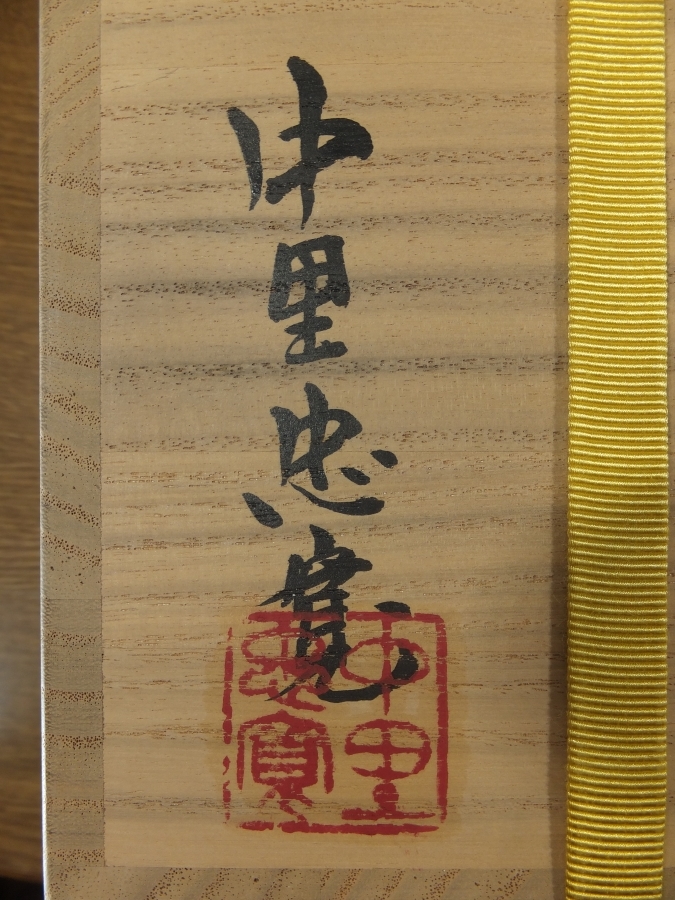 中里忠寛
中里
忠寛